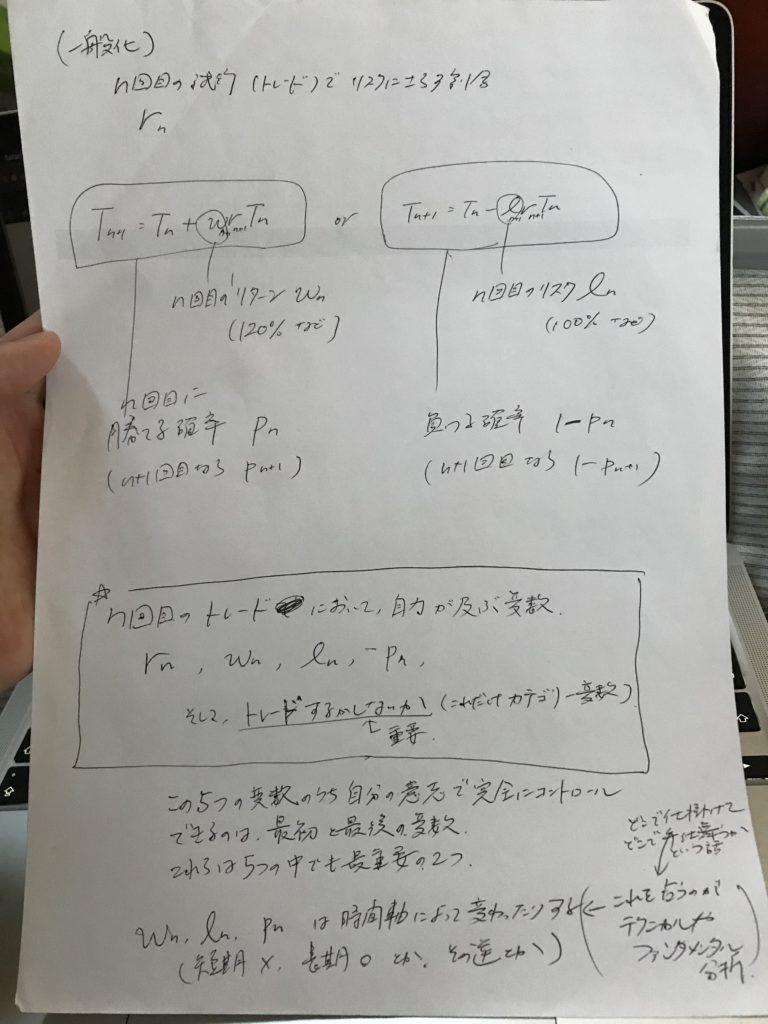 (一般化)
n回目の試行(トレード)でリスクにさらす割合
rn
Tn+1 = Tn + wn+1rn+1Tn or Tn+1 = Tn − ln+1rn+1Tn
n回目のリターン wn
(120%など)
n回目のリスク ln
(100%など)
n回目に
勝てる確率 pn
(n+1回目なら pn+1)
負ける確率 1−pn
(n+1回目なら 1−pn+1)
☆
n回目のトレードにおいて、自力が及ぶ変数.
rn, wn, ln, pn,
そして、トレードするかしないか(これだけカテゴリー変数)
↑重要.
この5つの変数のうち自分の意志で完全にコントロール
できるのは、最初と最後の変数.
これらは5つの中でも最重要の2つ.
どこで仕掛けて
どこで手仕舞うか
という話
wn, ln, pn は時間軸によって変わったりする
(短期×、長期○ とか、その逆とか)
← これを占うのが
テクニカルや
ファンダメンタル
分析.